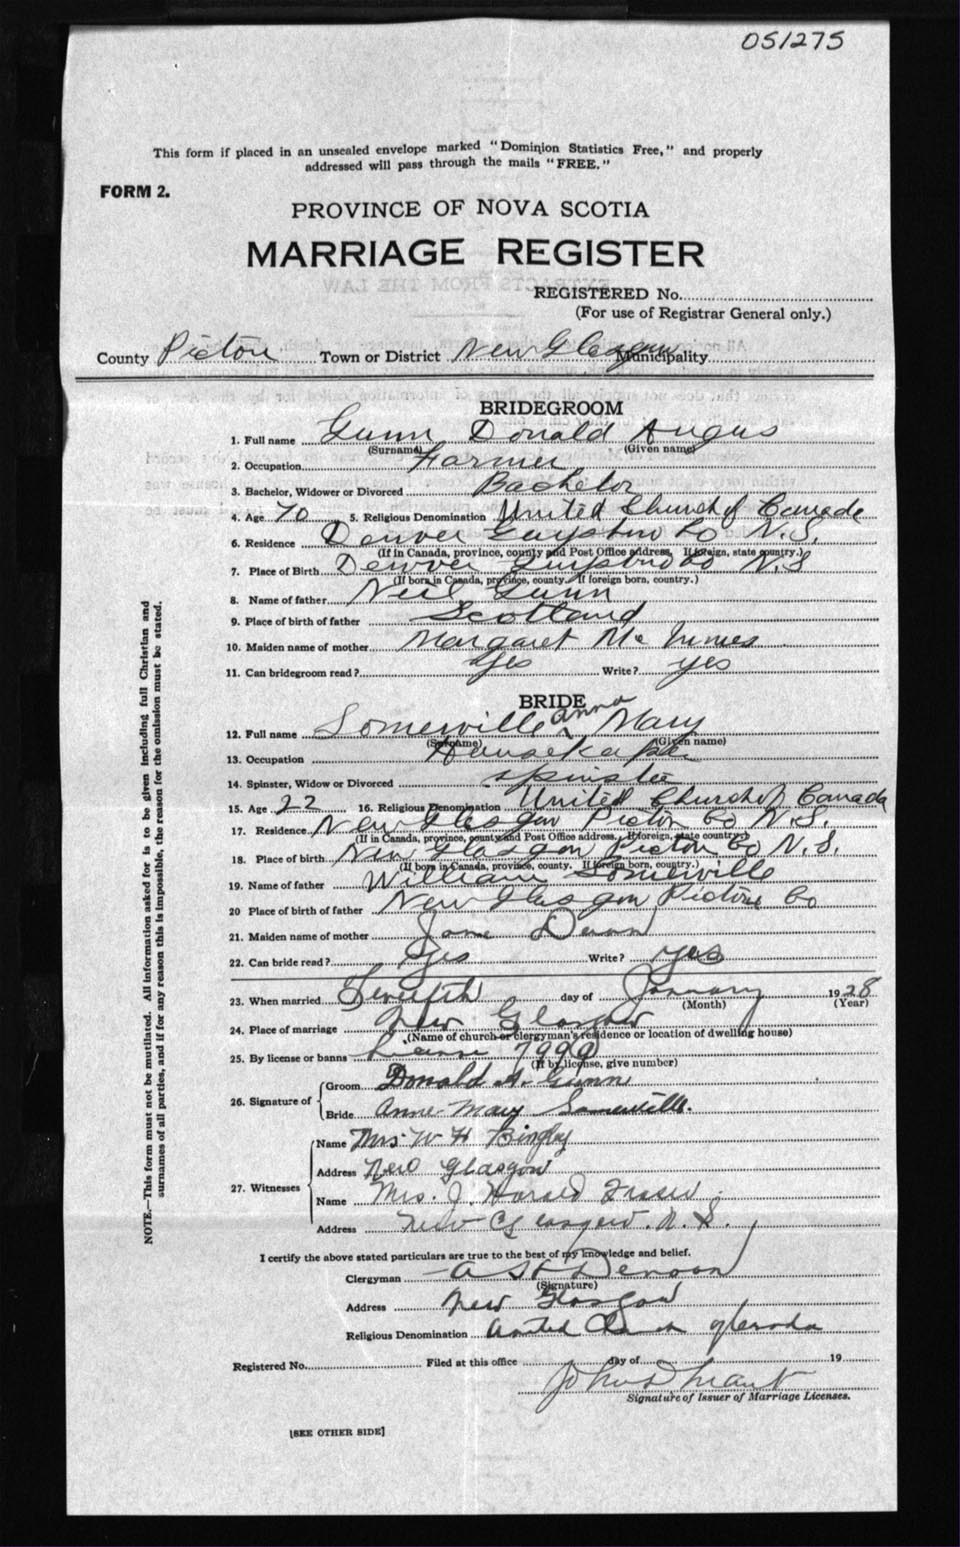 051275
This form if placed in an unsealed envelope marked "Dominion Statistics Free," and properly
addressed will pass through the mails "FREE."
FORM 2.
PROVINCE OF NOVA SCOTIA
MARRIAGE REGISTER
REGISTERED No.
(For use of Registrar General only.)
County Pictou Town or District New Glasgow Municipality
BRIDEGROOM
1. Full name Gunn Donald Angus
(Surname) (Given name)
2. Occupation Farmer
3. Bachelor, Widower or Divorced Bachelor
4. Age 70 5. Religious Denomination United Church of Canada
6. Residence Denver Guysboro Co N.S.
(If in Canada, province, county and Post Office address, If foreign, state country.)
7. Place of Birth Denver Guysboro Co N.S
(If born in Canada, province, county. If foreign born, country.)
8. Name of father Neil Gunn
9. Place of birth of father Scotland
10. Maiden name of mother Margaret Mc Innes
11. Can bridegroom read? Yes Write? yes
BRIDE
12. Full name Somerville Anna Mary
(Surname) (Given name)
13. Occupation
14. Spinster, Widow or Divorced Spinster
15. Age 22 16. Religious Denomination United Church of Canada
17. Residence New Glasgow Pictou Co N.S.
(If in Canada, province, county and Post Office address, If foreign, state country)
18. Place of birth New Glasgow Pictou Co N.S.
(If born in Canada, province, county. If foreign born, country.)
19. Name of father William Somerville
20 Place of birth of father New Glasgow Pictou Co
21. Maiden name of mother Jane Dunn
22. Can bride read? Yes Write? yes
23. When married Twelfth day of January 1928
(Month) (Year)
24. Place of marriage New Glasgow
(Name of church or clergyman's residence or location of dwelling house)
25. By license or banns License 7990
(If by license, give number)
26. Signature of Groom Donald A. Gunn
Bride Anne Mary Somerville.
27. Witnesses Name Mrs. W H
Address New Glasgow
Name Mrs. J. Harold Fraser
Address New Glasgow. N.S.
I certify the above stated particulars are true to the best of my knowledge and belief.
Clergyman A St Denoon
(Signature)
Address New Glasgow
Religious Denomination United Church of Canada
Registered No. Filed at this office day of 19
John D Grant
Signature of Issuer of Marriage Licenses.
[SEE OTHER SIDE]
NOTE.—This form must not be mutilated. All information asked for is to be given including full Christian and
surnames of all parties, and if for any reason this is impossible, the reason for the omission must be stated.